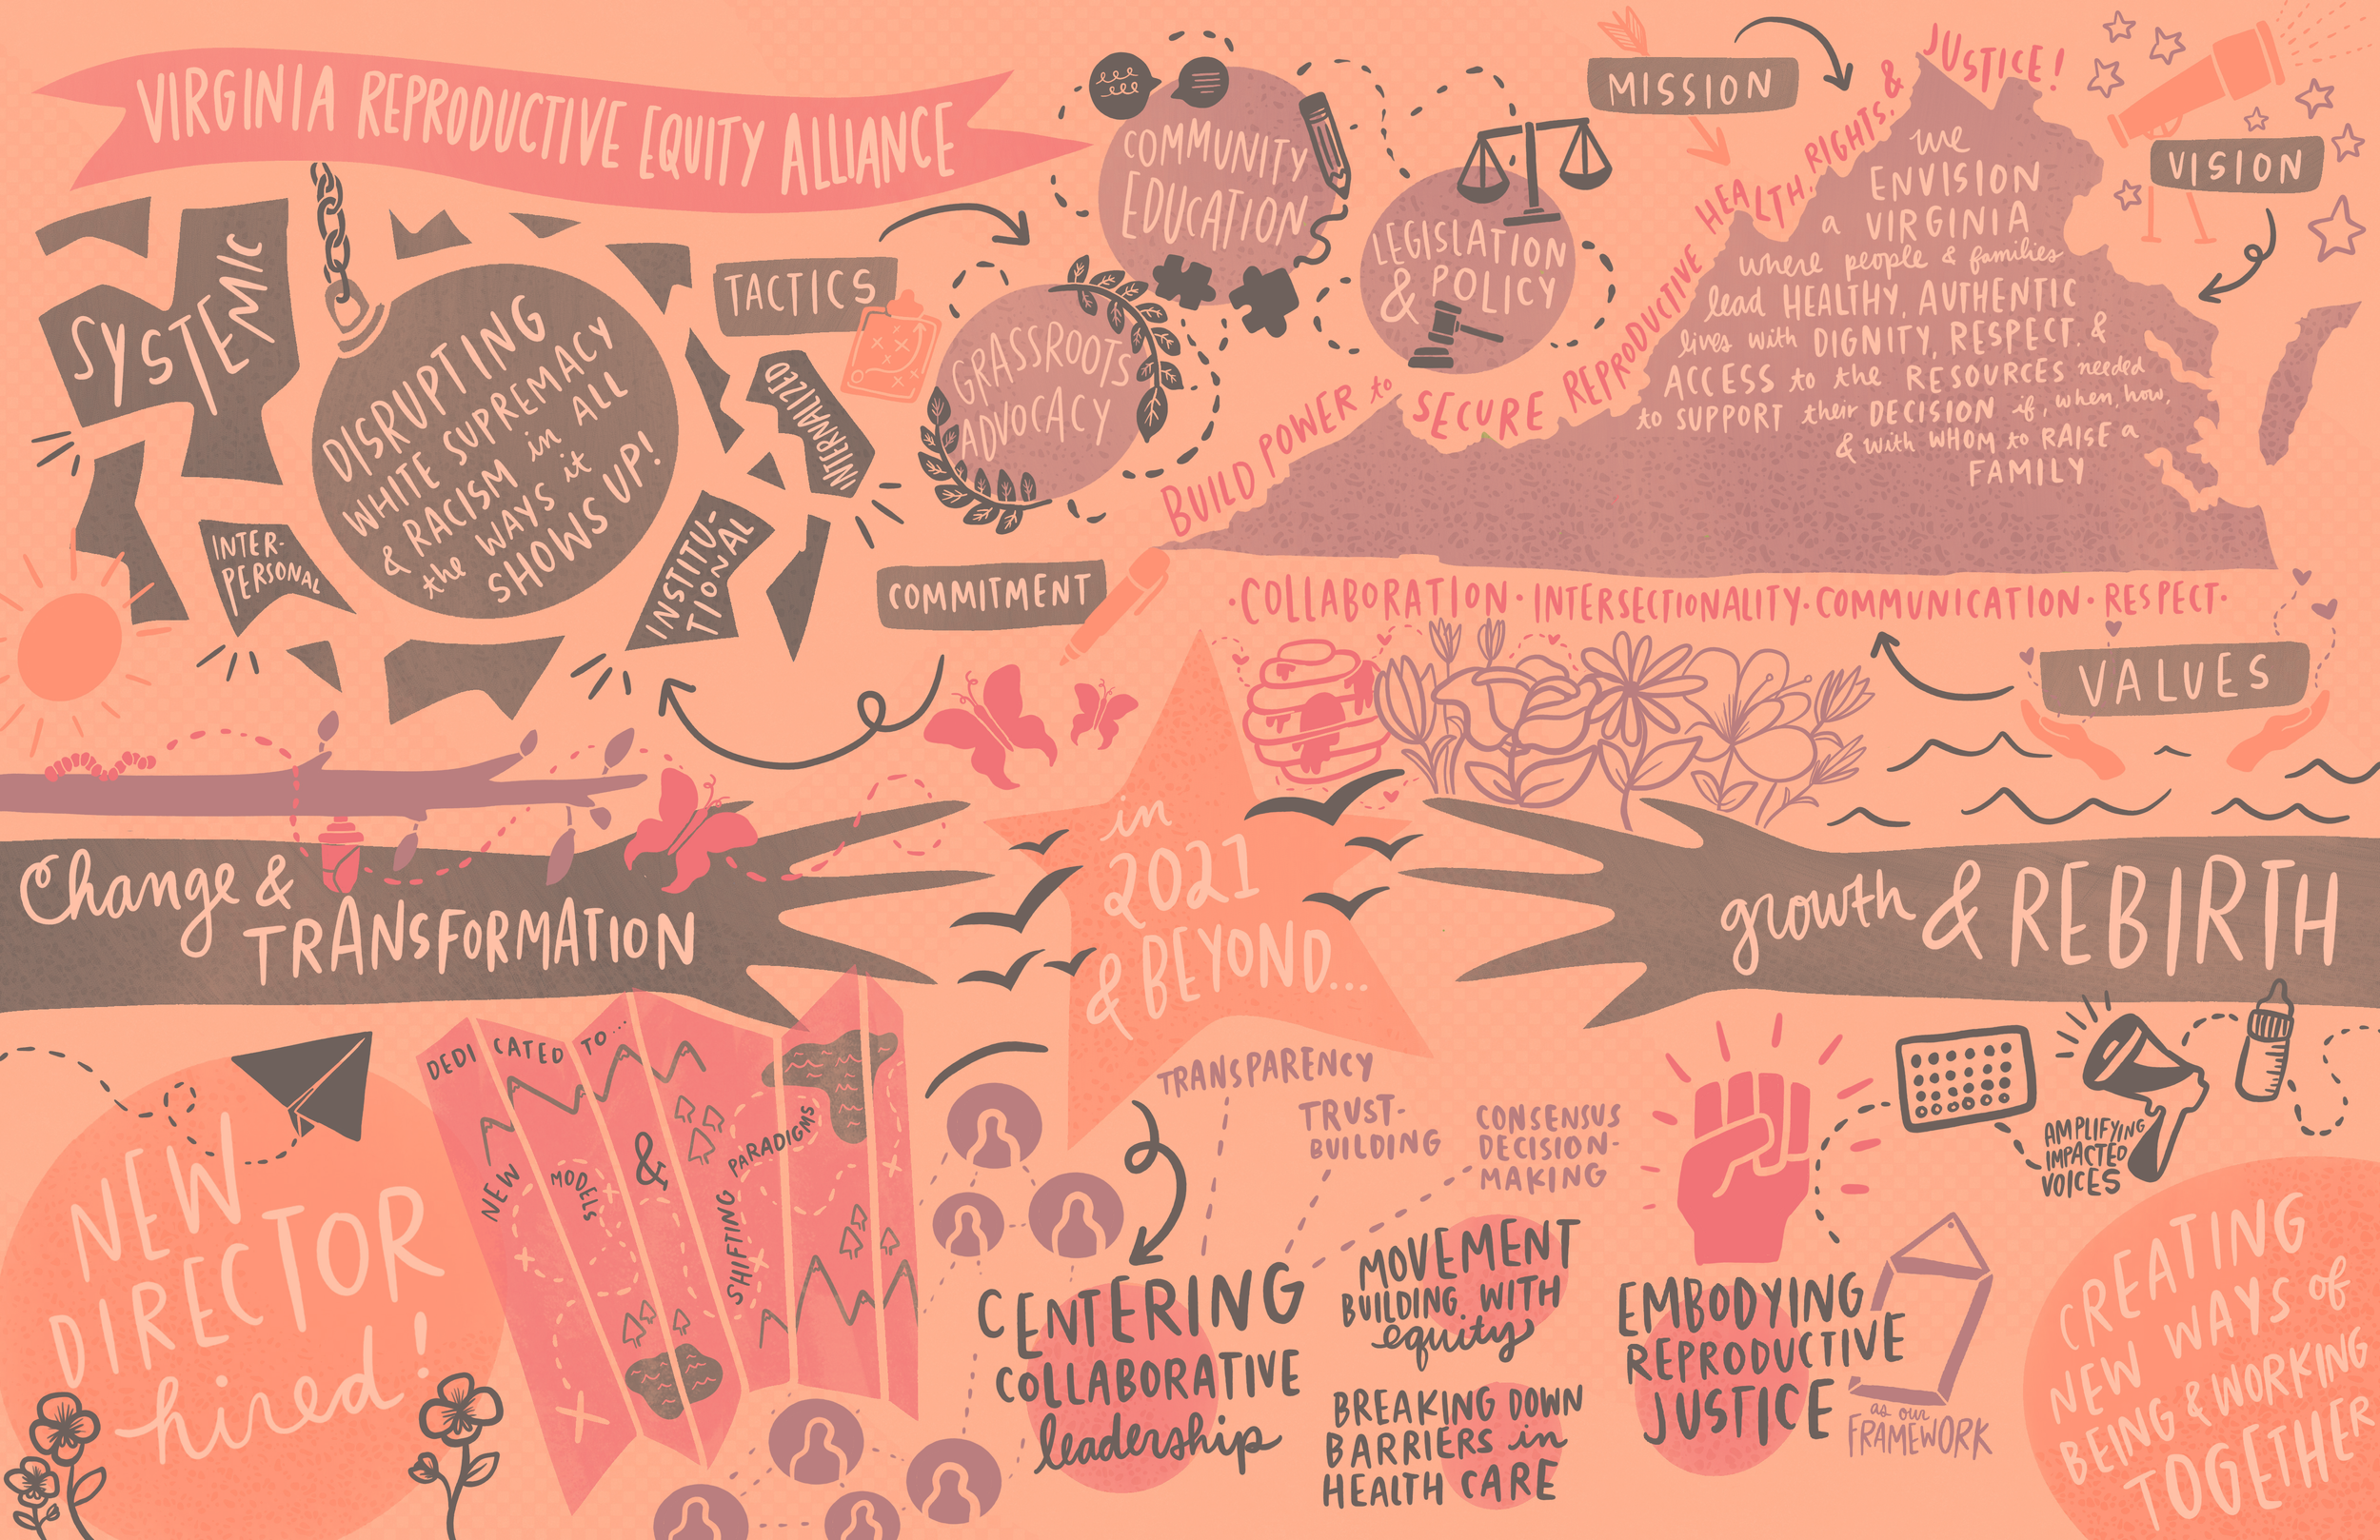 VIRGINIA REPRODUCTIVE EQUITY ALLIANCE
SYSTEMIC
DISRUPTING
WHITE SUPREMACY
& RACISM in ALL
the WAYS it
SHOWS UP!
INTER-
PERSONAL
INSTITU-
TIONAL
INTERNALIZED
TACTICS
COMMUNITY
EDUCATION
GRASSROOTS
ADVOCACY
LEGISLATION
& POLICY
MISSION
BUILD POWER to SECURE REPRODUCTIVE HEALTH, RIGHTS, & JUSTICE!
VISION
we
ENVISION
a VIRGINIA
where people & families
lead HEALTHY, AUTHENTIC
lives with DIGNITY, RESPECT, &
ACCESS to the RESOURCES needed
to SUPPORT their DECISION if, when, how,
& with WHOM to RAISE a
FAMILY
COMMITMENT
·COLLABORATION·INTERSECTIONALITY·COMMUNICATION·RESPECT·
VALUES
Change &
TRANSFORMATION
in
2021
& BEYOND...
growth & REBIRTH
NEW
DIRECTOR
hired!
DEDICATED TO...
NEW
MODELS
&
SHIFTING
PARADIGMS
TRANSPARENCY
TRUST-
BUILDING
CONSENSUS
DECISION-
MAKING
CENTERING
COLLABORATIVE
leadership
MOVEMENT
BUILDING WITH
equity
BREAKING DOWN
BARRIERS in
HEALTH CARE
EMBODYING
REPRODUCTIVE
JUSTICE
as our
FRAMEWORK
AMPLIFYING
IMPACTED
VOICES
CREATING
NEW WAYS of
BEING & WORKING
TOGETHER